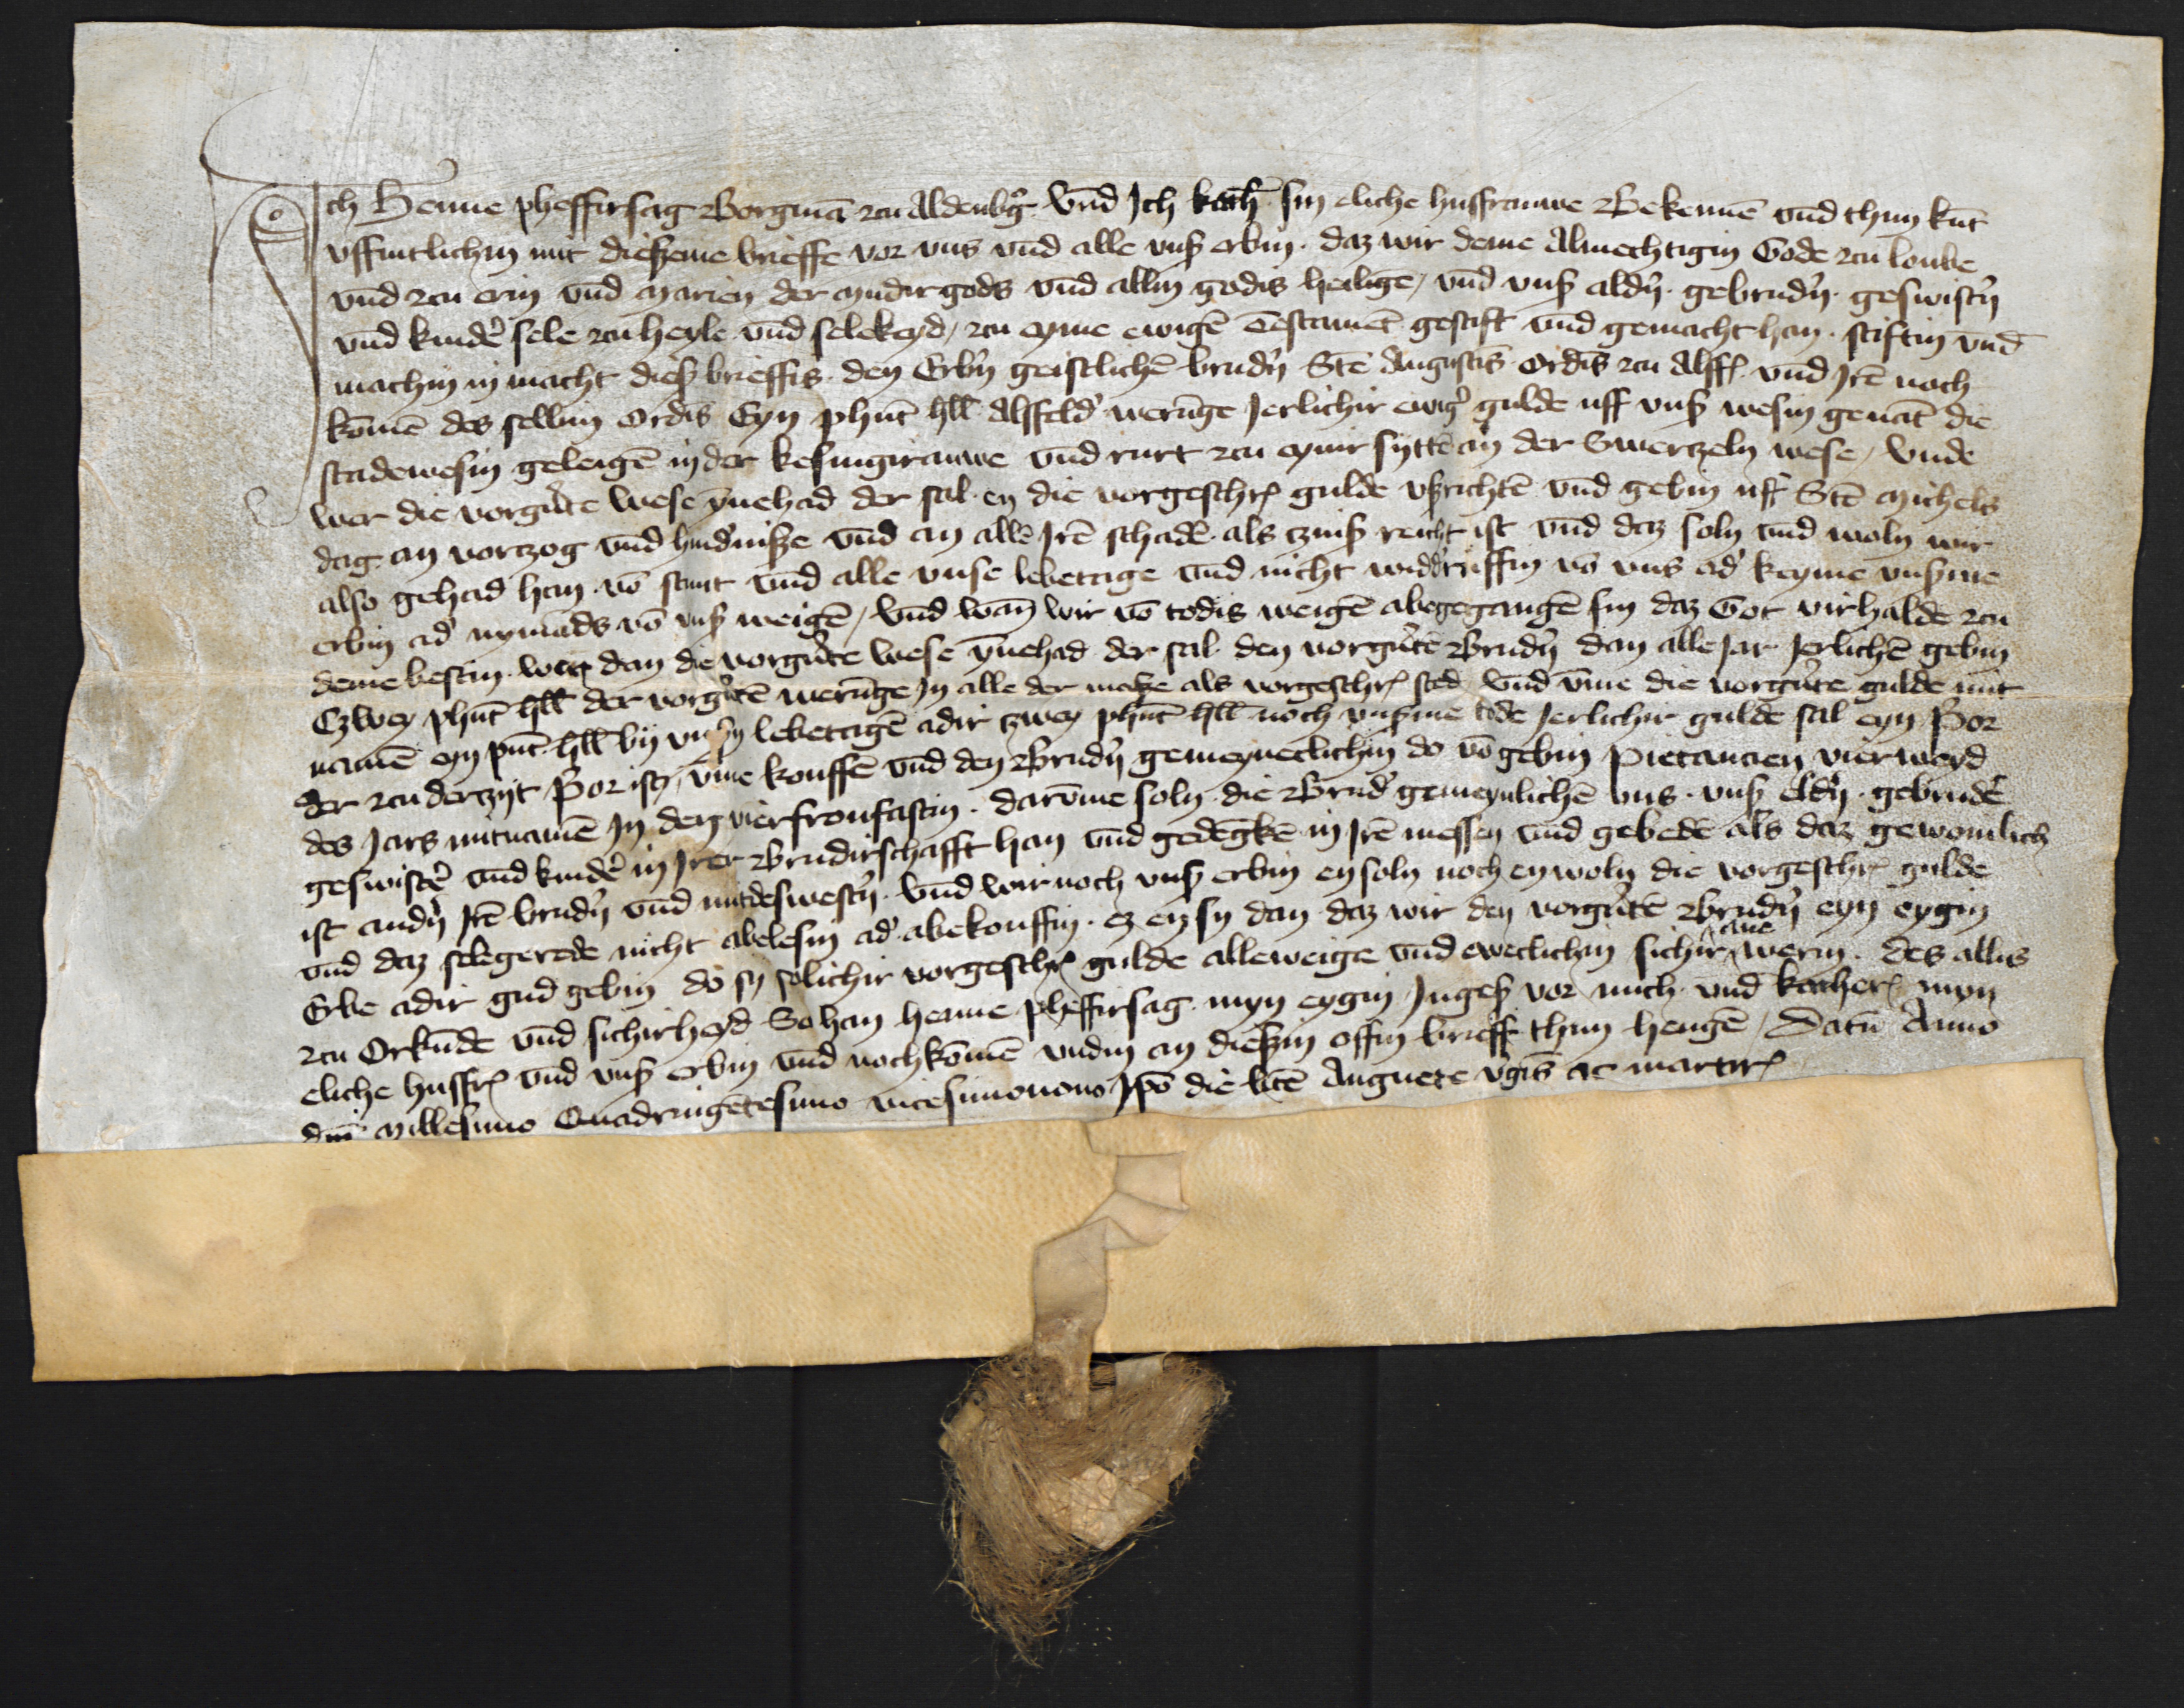 Ich Henne pheffirsag Borgmā zcu Aldenbg̊. vnd̄ Ich kath̄. sin eliche husfrauwe Bekennē vnd̄ thun kūt
vffintlichin mit dießeme brieffe vor vns vnd̄ alle vnß erbin. daz wir deme Almechtigin Gode zcu loube
vnd̄ zcu erin vnd̄ Marien der mudir gods vnd̄ allin godis heiligē, vnd̄ vnß aldn̉. gebrudn̉. geswistn̉
vnd̄ kindẻ sele zcu heyle vnd̄ selekeyd, zcu eyme ewigē Testamēt gestift vnd̄ gemacht han. stiftin vnd̄
machin in macht dieß brieffis. den Erbn̉ geistlichē brudn̉ Stē Augustīs Ordīs zcu Alsff̄. vnd̄ Irē noch
kōmē des selbin Ordīs Eyn phūt hll̄ Alsfeld̉ werūge Jerlichir ewig̉ gulde uff vnß wesin genāt die
stadewesin geleigē in der kesingirauwe vnd̄ rurt zcu eynir syttē an der Swertzeln wese, vnde
wer die vorgn̄te wese ynnehad der sal en die vorgeschr̄ gulde vßrichtē vnd̄ gebin uff Stē Michels
dag an vortzog vnd̄ hindniße vnd̄ an allē Irē schadē. als tzinß reicht ist vnd̄ daz soln vnd̄ woln wir
also gehad han. vō stunt vnd̄ alle vnse lebetage vnd̄ nicht widd̉ruffin vō vns ad̉ keyme vnßme
erbin ad̉ nymāds vō vnß weigē, vnd̄ wan̄ wir vō todis weigē abegegangē sin daz Got virhalde zcu
deme bestin. wer dan die vorgn̄te wese ynnehad der sal den vorgn̄tē Brudn̉ dan alle Jar Jerlichē gebin
Czwey phūt hll̄ der vorgn̄tē werūge in alle der maße als vorgeschr̄ sted vnd̄ vm̄e die vorgn̄te gulde mit
namē eyn pūt hll̄ bij vnßn̉ lebetagē adir tzwey phūt hll̄ noch vnßme tode Jerlichir gulde sal eyn Por
der zcu der zyt Por ist, vm̄e kouffē vnd̄ den Brudn̉ gemeyneclichin do vō gebin Pietancien vierwerd
des Jars mitnamē In den vier fronfastin. darūme soln die Brud̉ gemeynlichē vns. vnß eldn̉. gebrudẻ
geswistẻ vnd̄ kindẻ in Irer Brudirschafft han vnd̄ gedēgkē in Irē messen vnd̄ gebedē als daz gewonlich
ist andn̉ Irē brudn̉ vnd̄ mitdeswestn̉. vnd̄ wir noch vnß erbin en soln noch en woln die vorgeschr̄ gulde
vnd̄ daz selegerede nicht abelesin ad̉. abekouffin. ez en sy dan daz wir den vorgn̄tē Brudn̉ eyn eygin
Erbe adir gud gebin do sy solichir vorgeschr̄ gulde alleweige vnd̄ eweclichin sichir ane werin. des allis
zcu Orkūde vnd̄ sichirheyd So han henne pheffirsag myn eygin Ingeß vor mich vnd̄ kather̄ myn
eliche husfr̄ vnd̄ vnß erbin vnd̄ nochkōmē vndin an dießin offin brieff thun hengē, Datū Anno
dn̄i Millesimo Quadringētesimo vicesimonono Ipō die btē Angnete v̉gīs ac martir̄